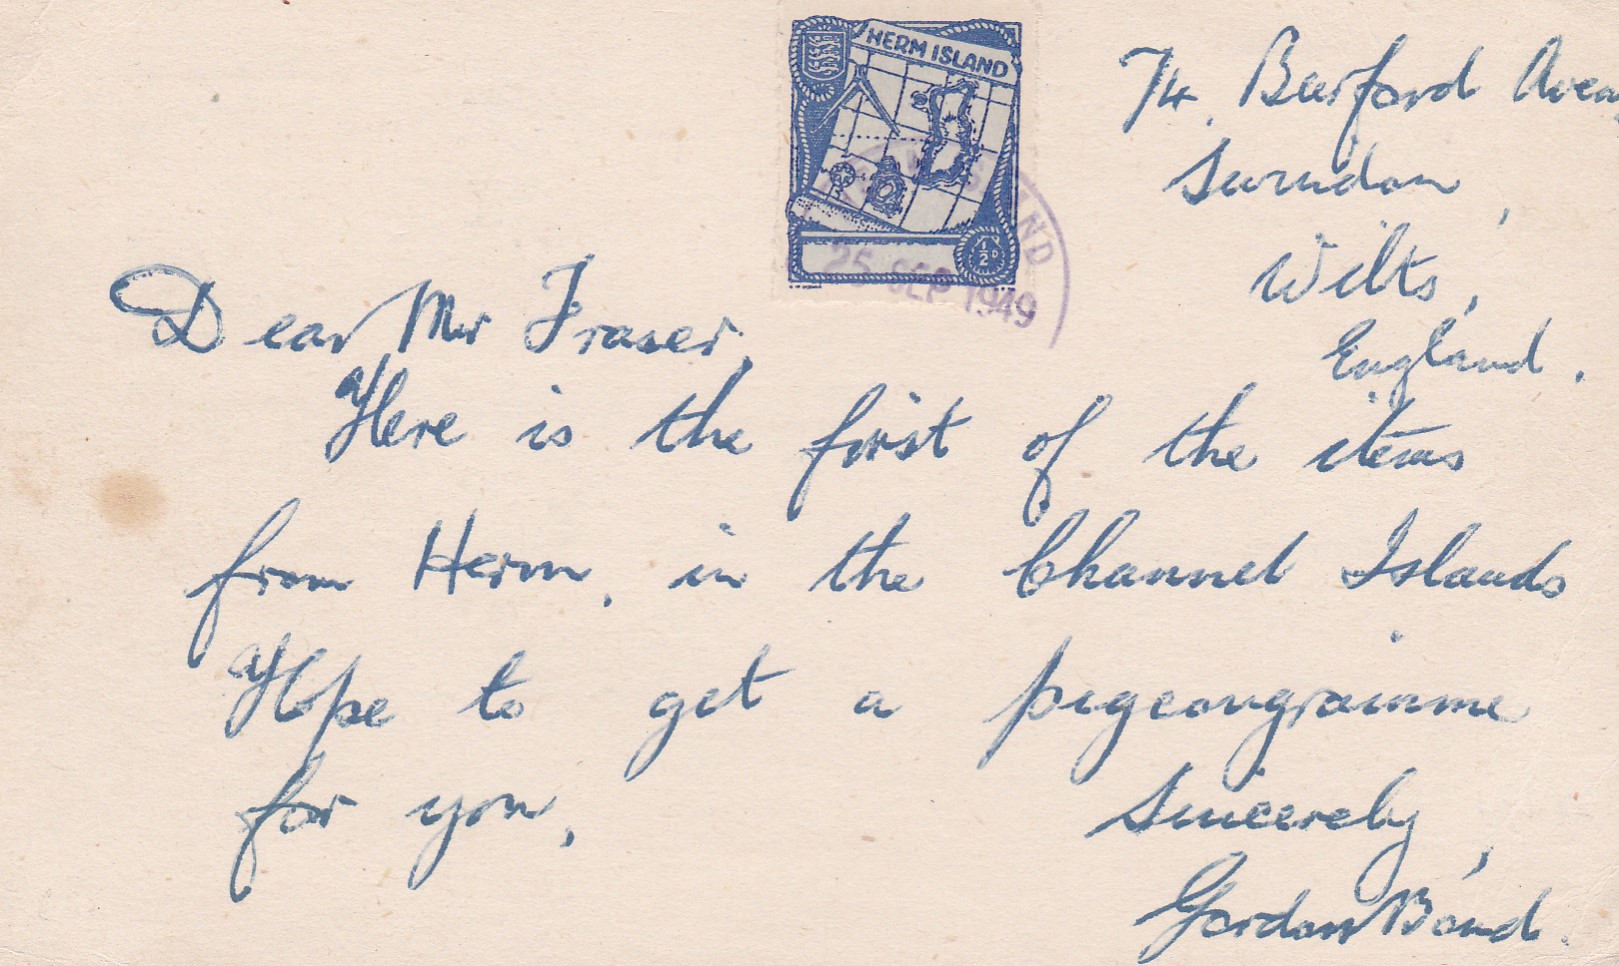 HERM ISLAND
½D
25 SEP 1949
74, Burford Aven
Swindon,
Wilts,
England.
Dear Mr Fraser,
Here is the first of the items
from Herm, in the Channel Islands
Hope to get a pigeongramme
for you,
Sincerely,
Gordon Bond.